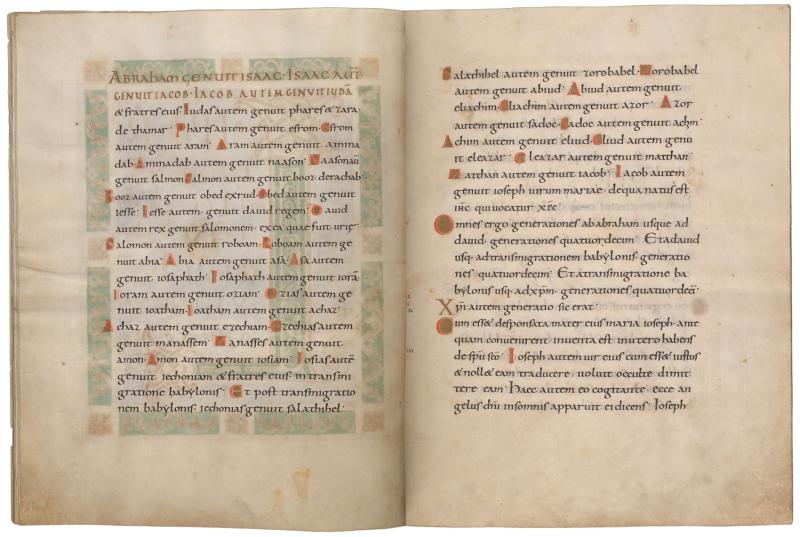 Abraham genuit isaac · Isaac aūt
genuit iacob · Iacob autem genuit iudā
& fratres eius · Iudas autem genuit phares & zara
de thamar · Phares autem genuit esrom · Esrom
autem genuit aram · Aram autem genuit amina
dab · Aminadab autem genuit naason · Naason aū
genuit salmon · Salmon autem genuit booz · derachab
Booz autem genuit obed exrud · Obed autem genuit
iesse · Iesse autem · genuit david regem · David
autem rex genuit salomonem · ex ea quae fuit urię ·
Salomon autem genuit roboam · Roboam autem ge
nuit abia · Abia autem genuit asa · Asa autem
genuit iosaphath · Iosaphath autem genuit iorā ·
Ioram autem genuit oziam · Ozias autem ge
nuit ioatham · Ioatham autem genuit achaz
Achaz autem genuit ezechiam · Ezechias autem
genuit manassem · Manasses autem genuit
amon · Amon autem genuit iosiam · Iosias autē
genuit iechoniam & fratres eius · in transmi
gratione babylonis · Et post transmigratio
nem babylonis · iechonias genuit salathihel ·
Salathihel autem genuit zorobabel · Zorobabel
autem genuit abiud · Abiud autem genuit
eliachim · Eliachim autem genuit azor · Azor
autem genuit sadoc · Sadoc autem genuit achim
Achim autem genuit eliud · Eliud autem genu
it eleazar · Eleazar autem genuit matthan
Mathan autem genuit iacob · Iacob autem
genuit ioseph virum mariae · de qua natus est
ihc qui vocatur xpc
Omnes ergo generationes ab abraham usque ad
david · generationes quatuordecim · Et a david
usq; ad transmigrationem babylonis · generatio
nes quatuordecim · Et a transmigratione ba
bylonis usq; ad xpm · generationes quatuordecī
Xpi autem generatio sic erat ·
Cum ess& desponsata mater eius maria ioseph · ante
quam convenirent inventa est in utero habens
de spu sco · Ioseph autem vir eius cum ess& iustus
& noll& eam traducere · voluit occulte dimit
tere eam · Haec autem eo cogitante · ecce an
gelus dni in somnis apparuit ei dicens · Ioseph